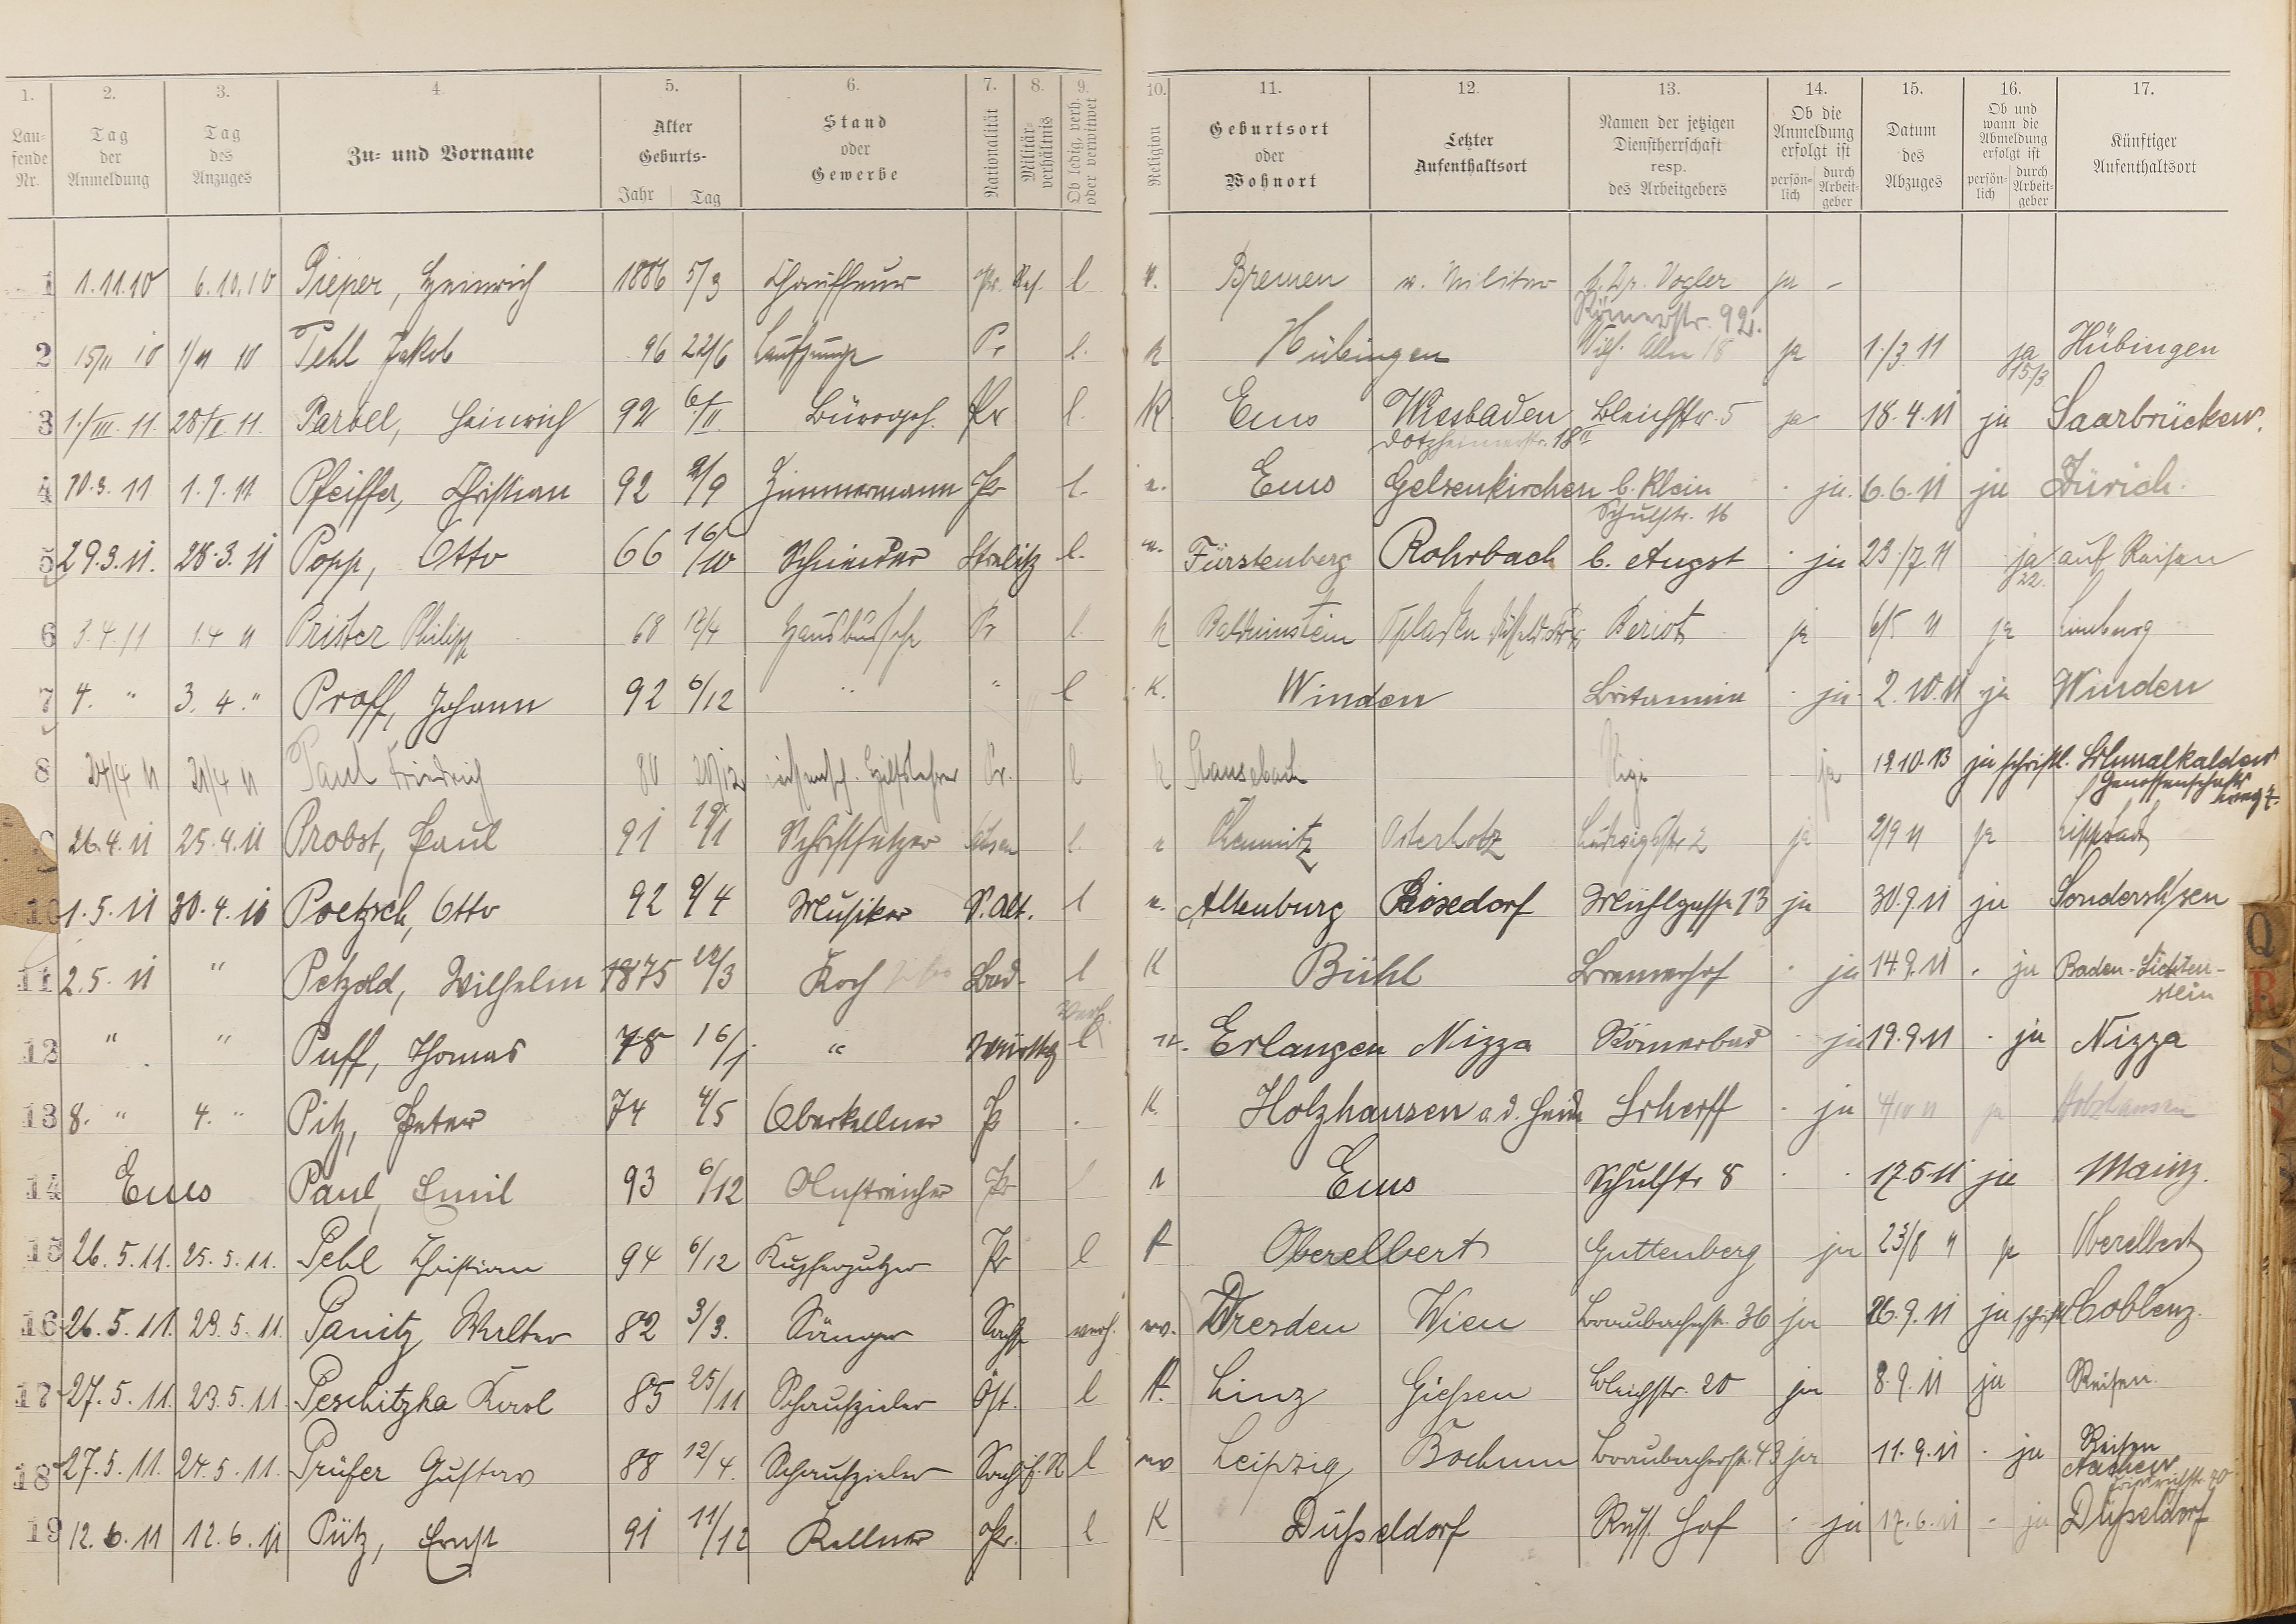 1. 2. 3. 4. 5. 6. 7. 8. 9. 10. 11. 12. 13. 14. 15. 16. 17.
Lau-fende Nr. Tag der Anmeldung Tag des Anzuges Zu- und Vorname Alter Geburts- Jahr Tag Stand oder Gewerbe Nationalität Militär-verhältnis Ob ledig, verh. oder verwitwet Religion Geburtsort oder Wohnort Letzter Aufenthaltsort Namen der jetzigen Dienstherrschaft resp. des Arbeitgebers Ob die Anmeldung erfolgt ist persön-lich durch Arbeit-geber Datum des Abzuges Ob und wann die Abmeldung erfolgt ist persön-lich durch Arbeit-geber Künftiger Aufenthaltsort
1 1.11.10 6.10.10 Pieper, Heinrich 1886 5/3 Chauffeur Pr. Res. l Bremen v. Militär b. Dr. Vogler ja -
Römerstr. 92.
2 15/11 10 1/11 10 Pehl Jakob 96 22/6 Laufjunge Pr l. k Hübingen Wilh. Allee 18 ja 1./3 11 ja 15/3. Hübingen
3 1./III. 11. 28/II 11. Parbel, Heinrich 92 6./II Bürogeh. Pr l. K. Ems Wiesbaden Bleichstr. 5 ja 18.4.11 ja Saarbrücken.
Dotzheimerstr. 18
4 1.9.11. Pfeiffer, Christian 92 2/9 Zimmermann Pr l. e. Ems Gelsenkirchen b. Klein ja. 6.6.11 ja Zürich.
Schulstr. 16
5 29.3.11. 28.3.11 Popp, Otto 66 16/10 Schneider Strelitz l. Fürstenberg Rohrbach b. Augst ja 23./7.11 ja 22. auf Reisen
6 3.4.11 1.4 11 Prister Philipp 68 12/4 Hausbursche Pr l. k Balduinstein Beriot ja 6/5 11 ja Limburg
7 4. " 3. 4. " Proff, Johann 92 6/12 " " l K. Winden Britannia ja 2.10.11 ja Winden
8 24/4 11 21/4 11 Paul Friedrich 80 20/12 Hilfslehrer Pr. l k Stausebach ja 19.10.13 ja schriftl. Schmalkalden
Genossenschafts
weg 7.
26.4.11 25.4.11 Probst, Paul 91 19/1 Schriftsetzer Sachsen l. e Chemnitz Osterholz Ludwigstr 2 ja 2/9 11 ja Lippstadt
10 1.5.11 30.4.10 Poetzsch, Otto 92 9/4 Musiker S. Alt. l e. Altenburg Roisdorf Mühlgasse 13 ja 30.9.11 ja Sondershsen
11 2.5.11 " Petzold, Wilhelm 1875 22/3 Koch Bad. l K Bühl Bremerhof ja 14.9.11 ja Baden-Lichten-
stein
12 " " Puff, Thomas 78 16/1 " Württbg verh. l Erlangen Nizza Römerbad ja 19.9.11 ja Nizza
13 8. " 4. " Pitz, Peter 74 4/5 Oberkellner Pr K Holzhausen a. d. Heide Scherff ja 4/10 11 ja Holzhausen
14 Ems Paul, Emil 93 6/12 Anstreicher Pr l Ems Schulstr 8 17.5.11 ja Mainz.
15 26.5.11. 25.5.11. Pehl Christian 94 6/12 Kupferputzer Pr l k Oberelbert Guttenberg ja 23/8 11 ja Oberelbert
16 26.5.11. 23.5.11. Panitz Walter 82 3/3. Sänger Sachs verh. ev. Dresden Wien Braubacherstr. 36 ja 26.9.11 ja schriftl Coblenz.
17 27.5.11. 23.5.11. Peschitzka Karl 85 25/11 Schauspieler Öst. l k. Linz Giessen Bleichstr. 20 ja 8.9.11 ja Reisen.
18 27.5.11. 24.5.11. Prüfer Gustav 88 12/4. Schauspieler Sachs l ev Leipzig Bochum Braubacherstr. 43 ja 11.9.11 ja Reisen
Aachen
Friedrichstr. 40
19 12.6.11 12.6.11 Pütz, Ernst 91 11/12 Kellner Pr. l K Düsseldorf Russ. Hof ja 17.6.11 ja Düsseldorf
Q
R
S